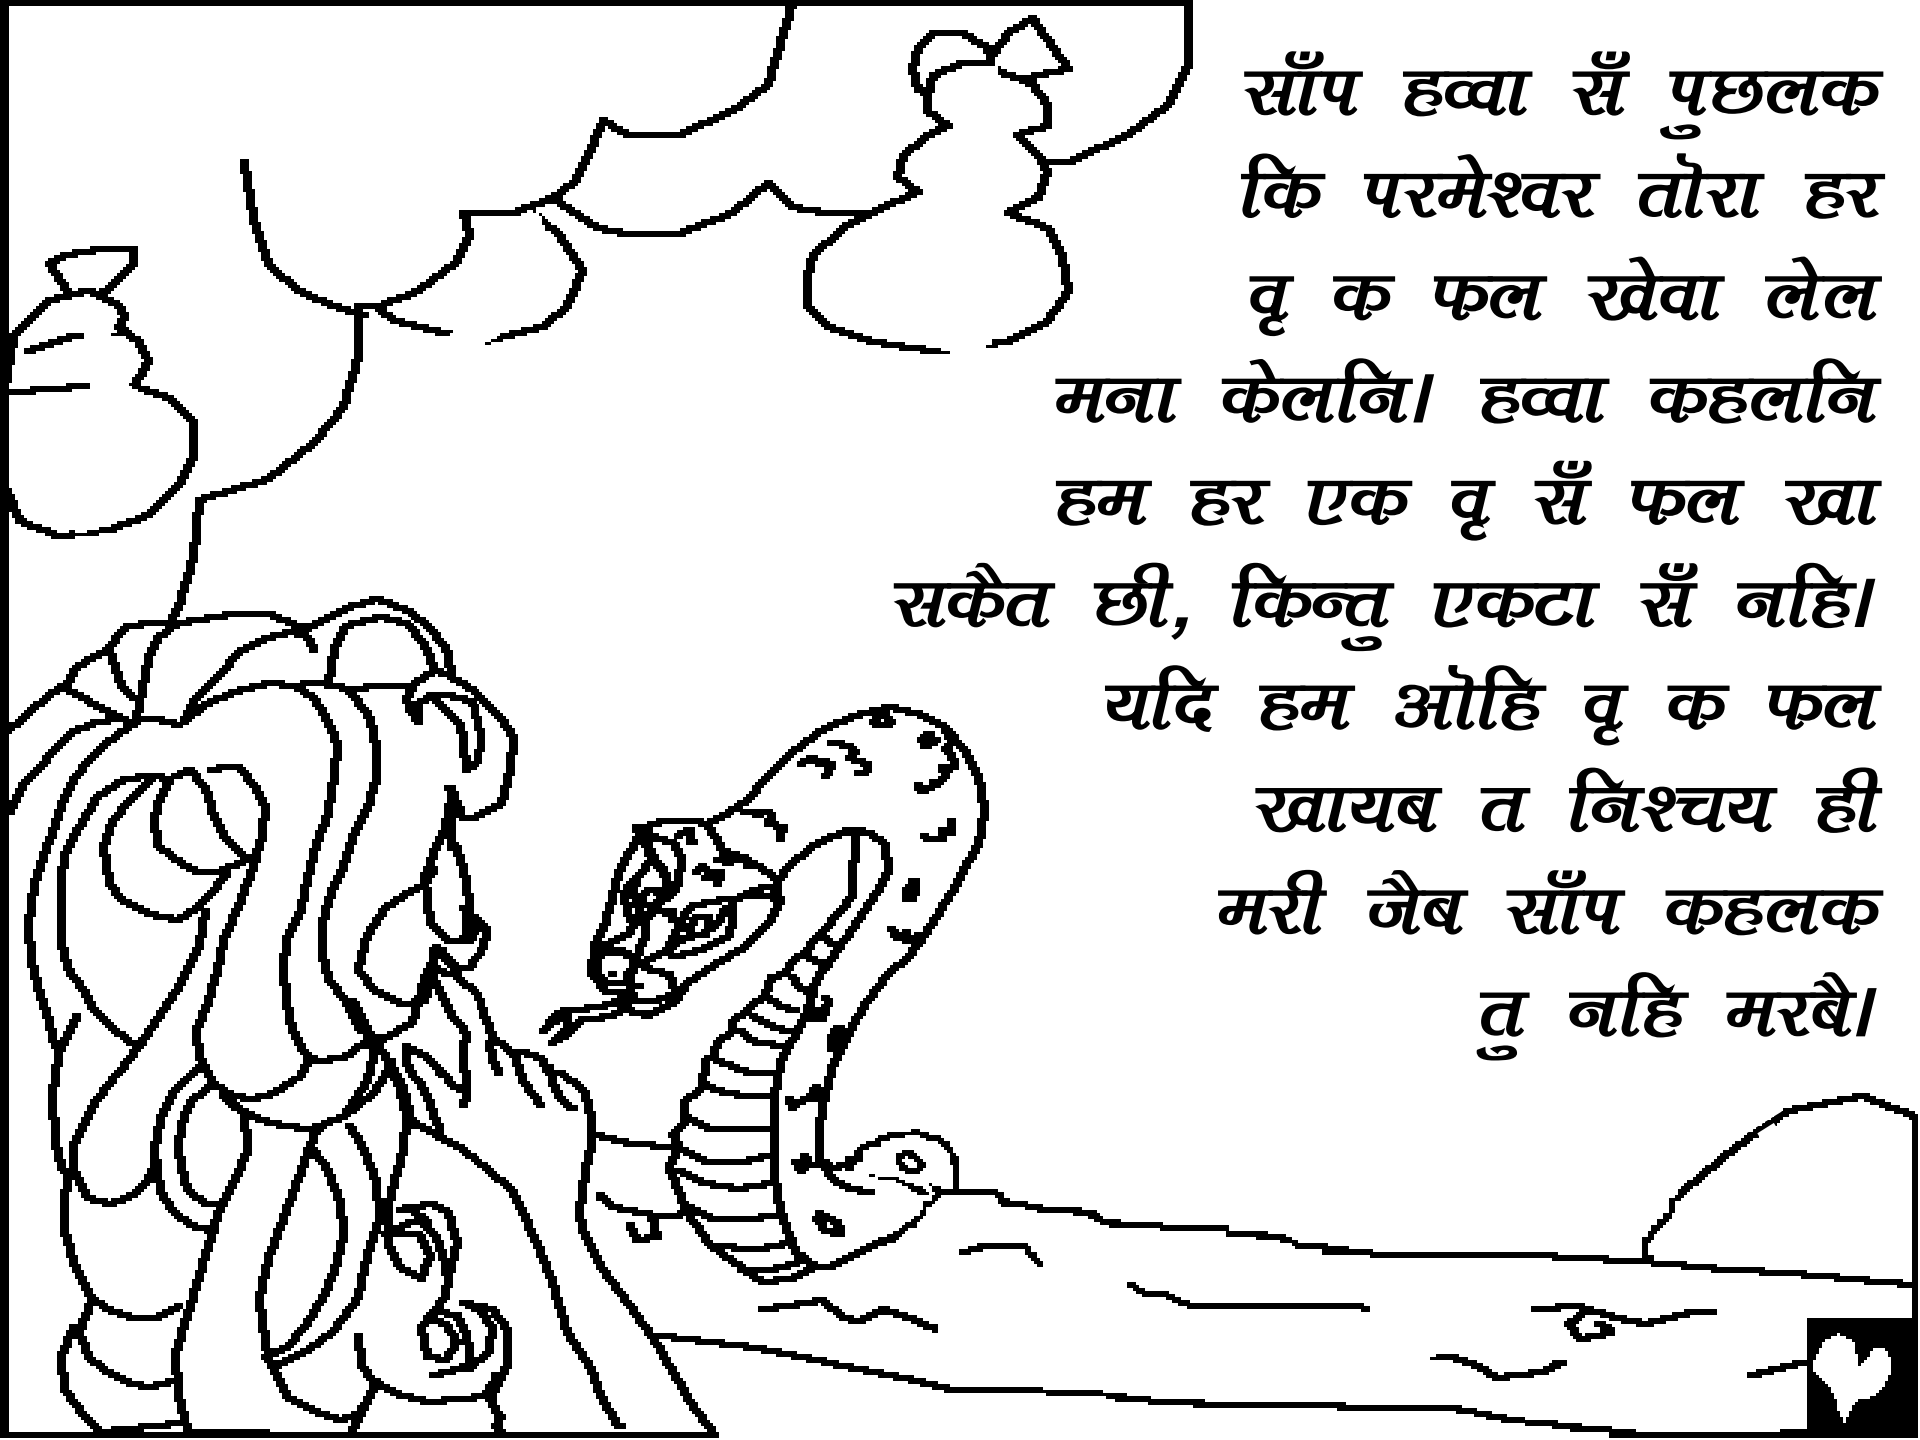 साँप हव्वा सँ पुछलक
कि परमेश्वर तॊरा हर
वृ क फल खेवा लेल
मना केलनि। हव्वा कहलनि
हम हर एक वृ सँ फल खा
सकैत छी, किन्तु एकटा सँ नहि।
यदि हम ऒहि वृ क फल
खायब त निश्चय ही
मरी जैब साँप कहलक
तु नहि मरबै।